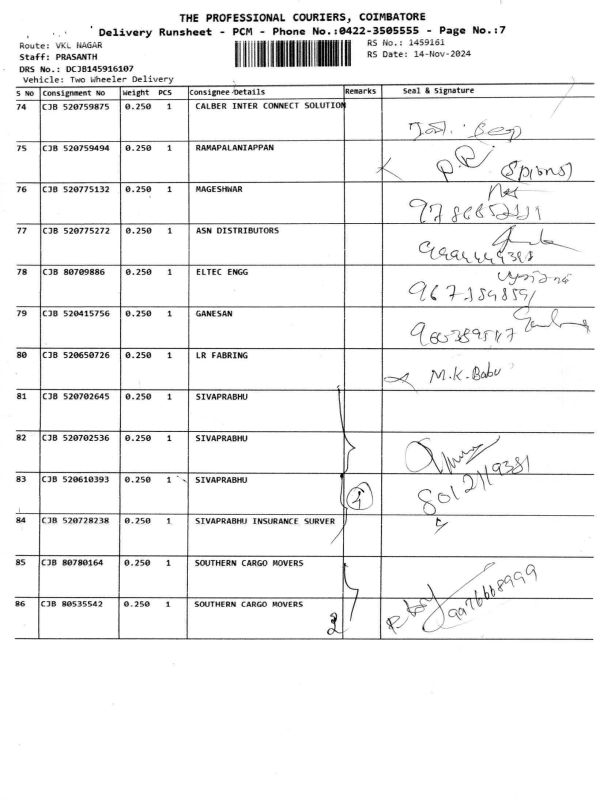 THE PROFESSIONAL COURIERS, COIMBATORE
Delivery Runsheet - PCM - Phone No.:0422-3505555 - Page No.:7
Route: VKL NAGAR
RS No.: 1459161
Staff: PRASANTH
RS Date: 14-Nov-2024
DRS No.: DCJB145916107
Vehicle: Two Wheeler Delivery
S No Consignment No Weight PCS Consignee Details Remarks Seal & Signature
74 CJB 520759875 0.250 1 CALBER INTER CONNECT SOLUTION
75 CJB 520759494 0.250 1 RAMAPALANIAPPAN
76 CJB 520775132 0.250 1 MAGESHWAR
77 CJB 520775272 0.250 1 ASN DISTRIBUTORS
78 CJB 80709886 0.250 1 ELTEC ENGG
79 CJB 520415756 0.250 1 GANESAN
80 CJB 520650726 0.250 1 LR FABRING M.K.Babu
81 CJB 520702645 0.250 1 SIVAPRABHU
82 CJB 520702536 0.250 1 SIVAPRABHU
83 CJB 520610393 0.250 1 SIVAPRABHU 4 8012119381
84 CJB 520728238 0.250 1 SIVAPRABHU INSURANCE SURVER
85 CJB 80780164 0.250 1 SOUTHERN CARGO MOVERS
86 CJB 80535542 0.250 1 SOUTHERN CARGO MOVERS 2 9976668999